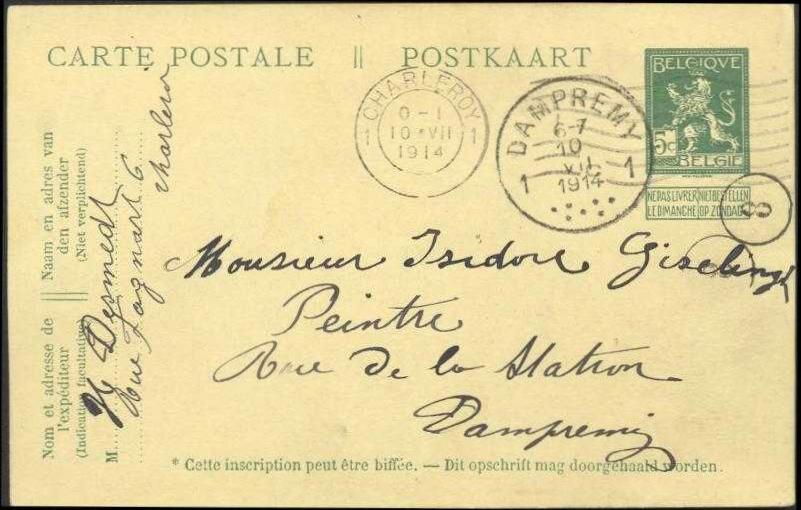 CARTE POSTALE || POSTKAART
BELGIQVE
5c
BELGIE
NE PAS LIVRER NIET BESTELLEN
LE DIMANCHE OP ZONDAG
CHARLEROY
0-1
1 10 VII 1
1914
DAMPREMY
6-7
10
1 VII 1
1914
8
Monsieur Isidore Giselingh
Peintre
Rue de la Station
Dampremy
* Cette inscription peut être biffée. — Dit opschrift mag doorgehaald worden.
Naam en adres van
den afzender
(Niet verplichtend)
Nom et adresse de
l'expéditeur
(Indication facultative)
M
Desmedt
Rue 6
Charleroi